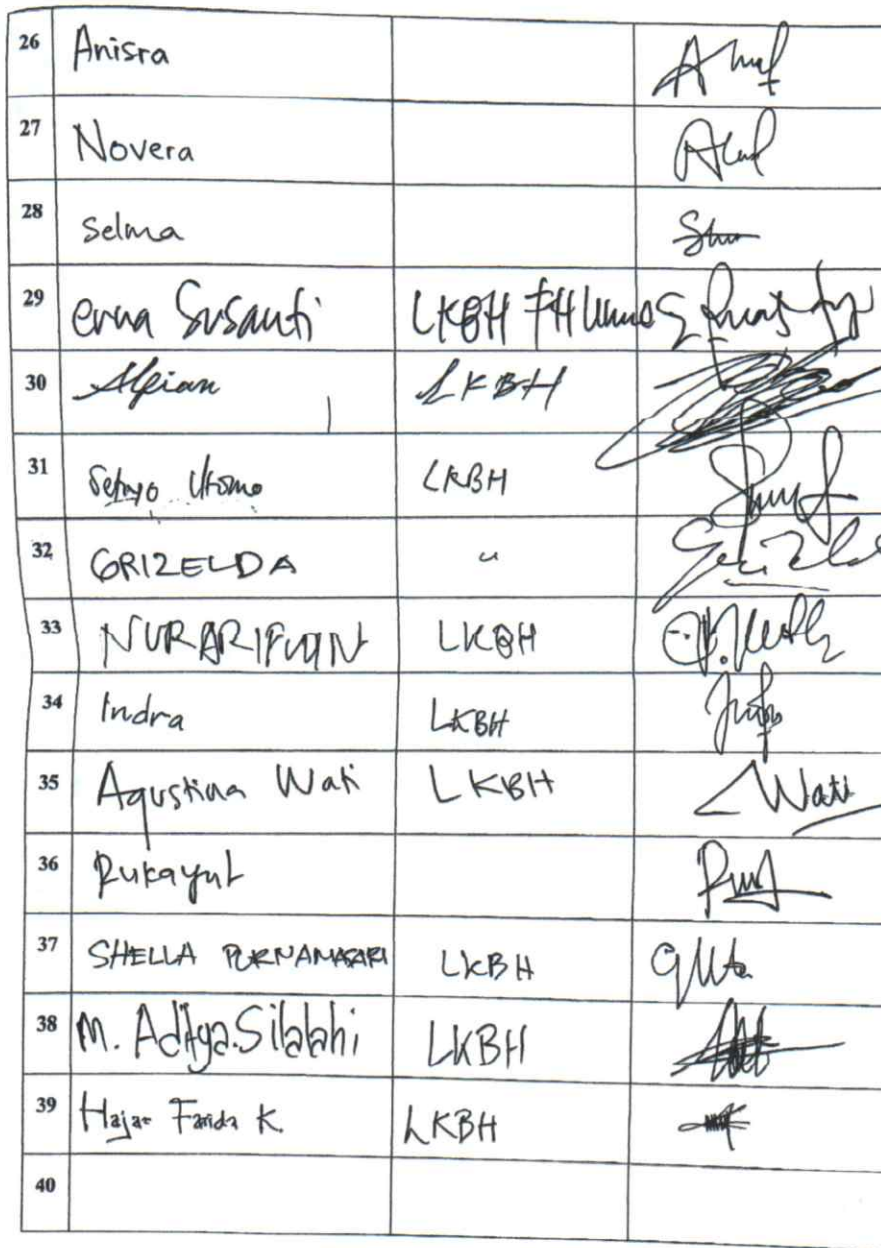 26 Anisra
27 Novera
28 Selma
29 erna Susanti LKBH FH Unmul
30 Alfian LKBH
31 Setiyo Utomo LKBH
32 GRIZELDA "
33 NUR ARIFUDIN LKBH
34 Indra LKBH
35 Agustina Wati LKBH Wati
36 Rukayat
37 SHELLA PURNAMASARI LKBH
38 M. Aditya.Silalahi LKBH
39 Hajar Farida K. LKBH
40